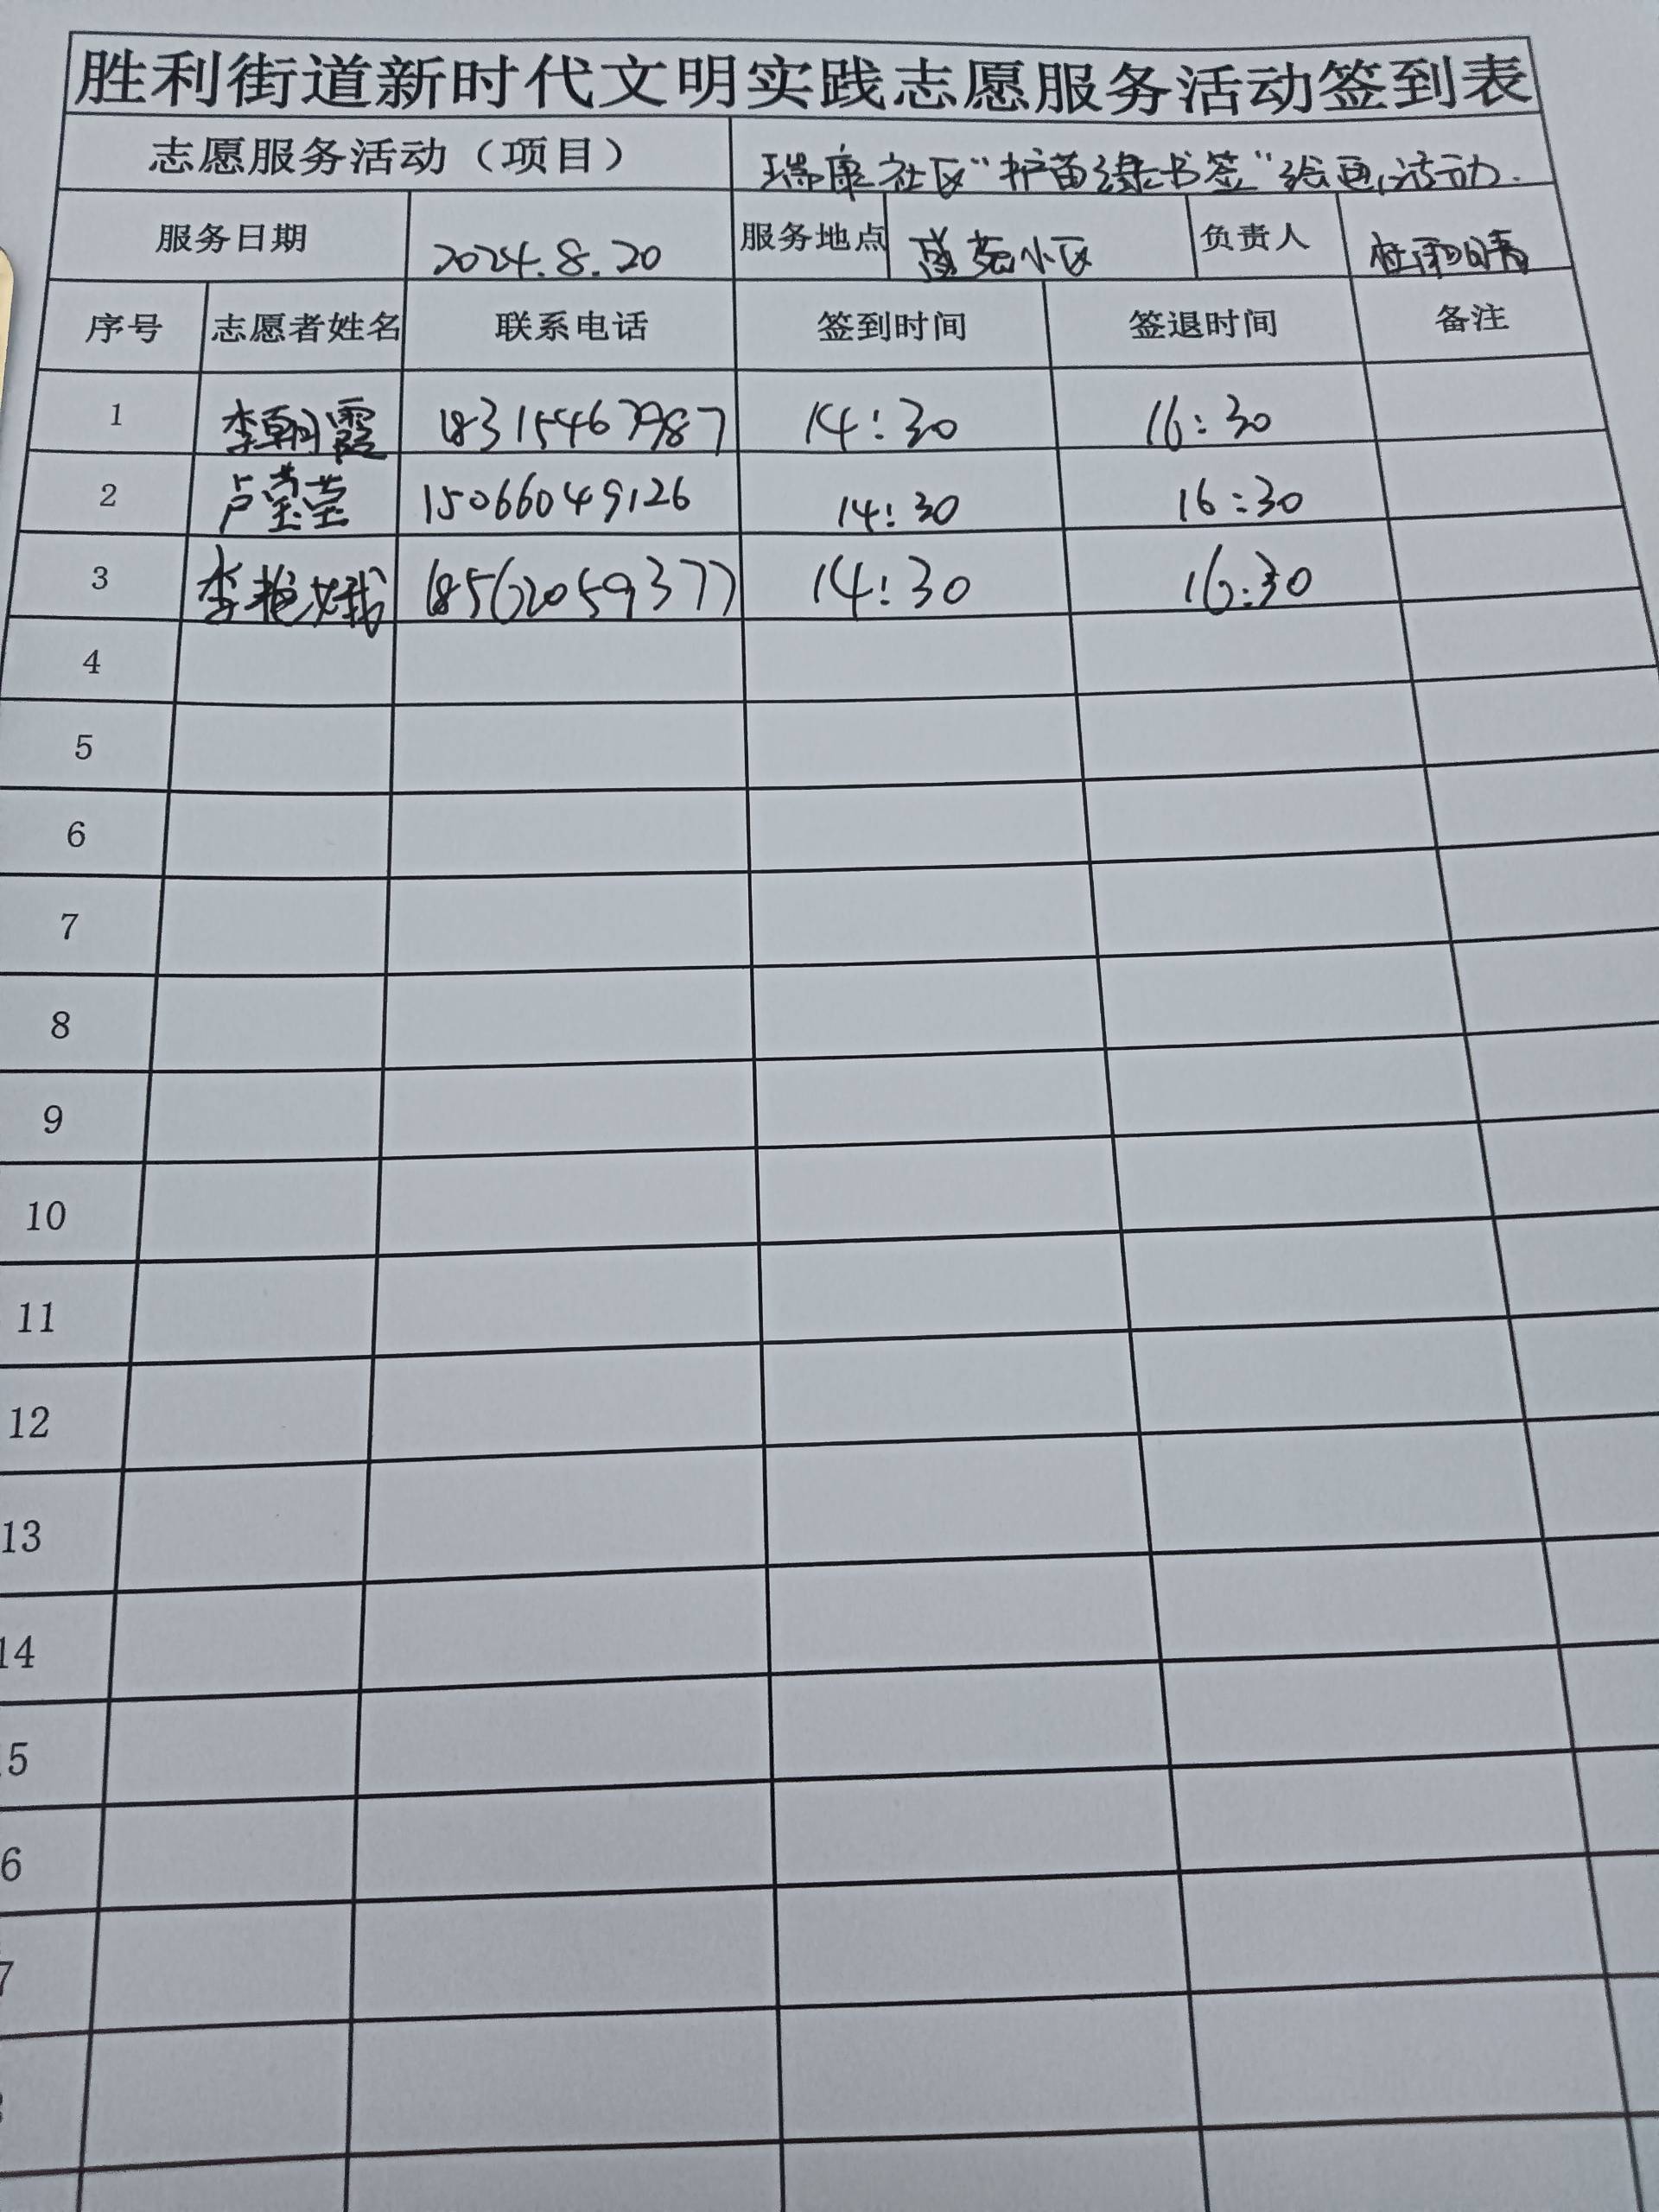 胜利街道新时代文明实践志愿服务活动签到表
志愿服务活动（项目） 瑞康社区“护苗绿书签”绘画活动.
服务日期 2024.8.20 服务地点 小区 负责人 杜雨晴
序号 志愿者姓名 联系电话 签到时间 签退时间 备注
1 李朝霞 18315467987 14:30 16:30
2 卢莹莹 15066049126 14:30 16:30
3 李艳娥 18562059377 14:30 16:30
4
5
6
7
8
9
10
11
12
13
14
5
6
7